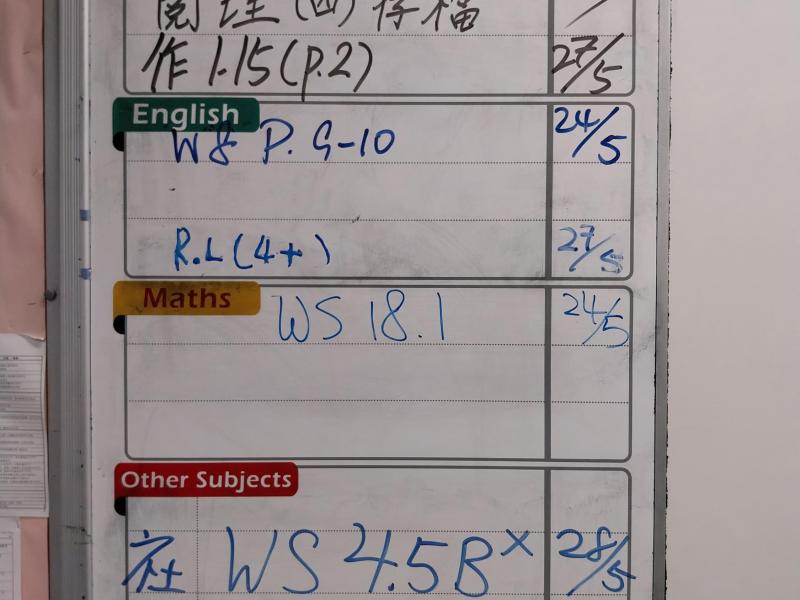 閱理(四)存福
作1.15(p.2) 27/5
English
W8 P. 9-10 24/5
R.L(4+) 27/5
Maths
WS 18.1 24/5
Other Subjects
社 WS 4.5B× 28/5